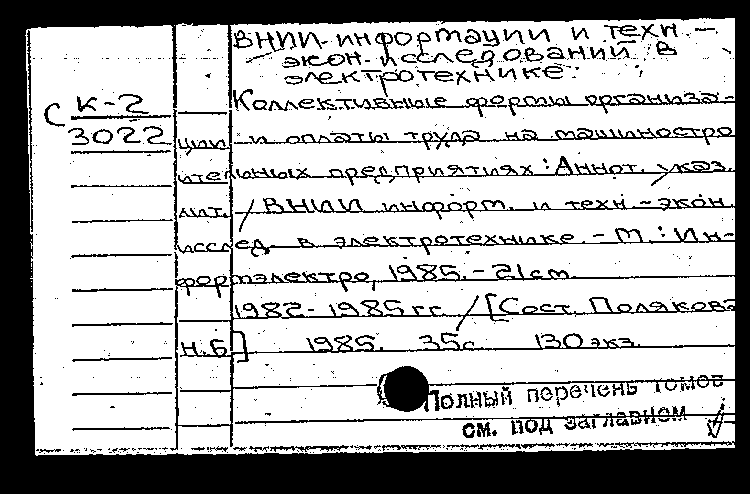 ВНИИ информации и техн.-
экон. исследований в
электротехнике.
С К-2
3022
Коллективные формы организа-
ции и оплаты труда на машиностро
ительных предприятиях: Аннот. указ.
лит. / ВНИИ информ. и техн.-экон.
исслед. в электротехнике. - М.: Ин-
формэлектро, 1985. - 21 см.
1982-1985 гг. / [Сост. Полякова
Н.Б] 1985. 35с 130 экз.
Полный перечень томов
см. под заглавием